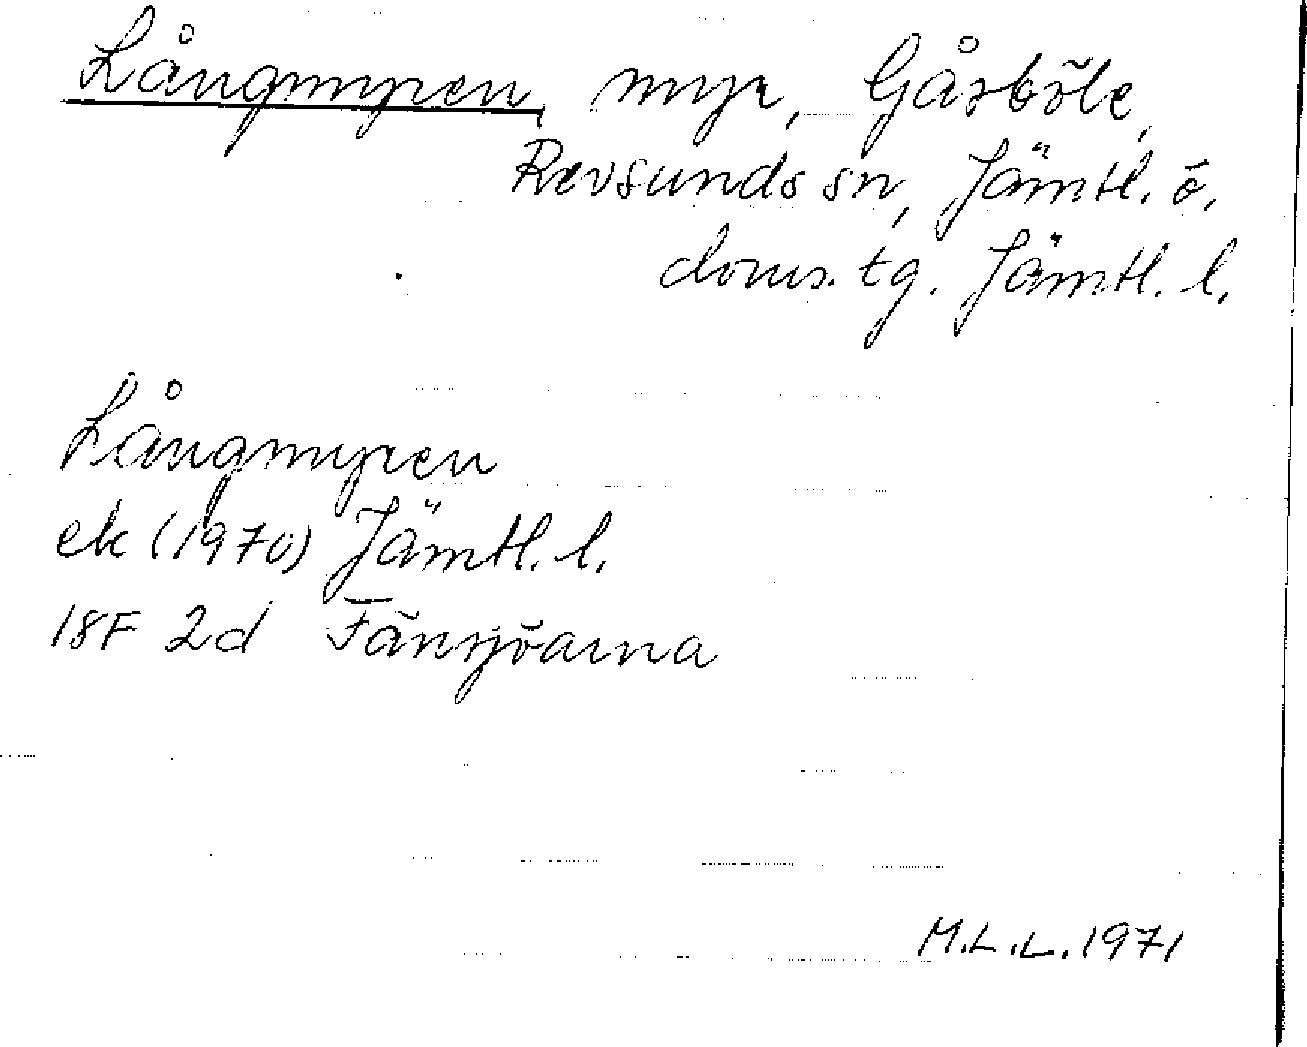 Långmyren, myr, Gåsböle,
Revsunds sn, Jämtl. ö.
doms. tg. Jämtl. l.
Långmyren
ek (1970) Jämtl. l.
18F 2d Fänsjöarna
M.L.L. 1971